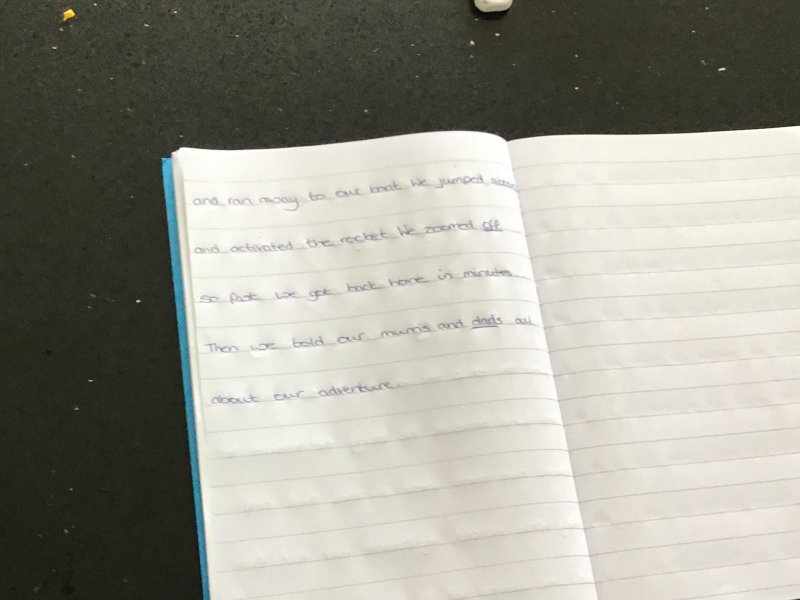 and ran away to our boat. We jumped
and activated the rocket. We zoomed off
so fast we got back home in minutes.
Then we told our mums and dads all
about our adventure.